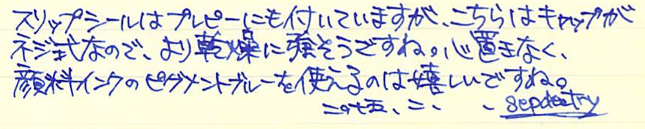 スリップシールはプレピーにも付いていますが、こちらはキャップが
ネジ式なので、より乾燥に強そうですね。心置きなく、
顔料インクのピグメントブルーを使えるのは嬉しいですね。
二〇十五、二、 、